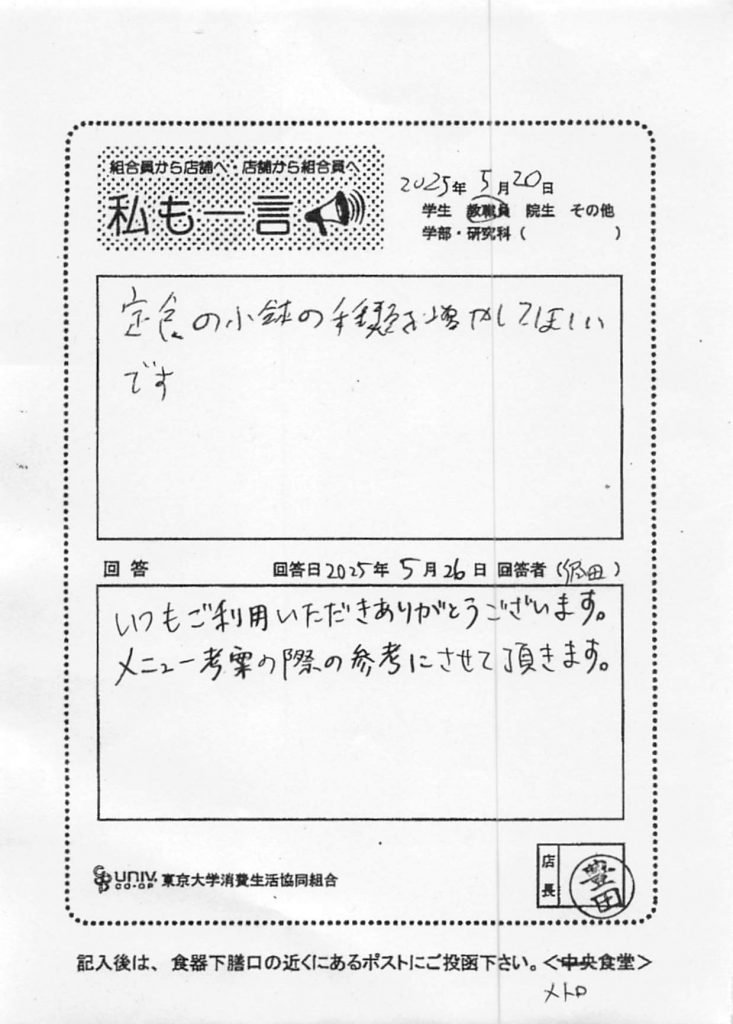 組合員から店舗へ・店舗から組合員へ
私も一言
2025年 5月20日
学生 教職員 院生 その他
学部・研究科( )
定食の小鉢の種類を増やしてほしい
です
回答 回答日2025年 5月26日 回答者( 田)
いつもご利用いただきありがとうございます。
メニュー考案の際の参考にさせて頂きます。
UNIV. CO-OP 東京大学消費生活協同組合
店長 豊田
記入後は、食器下膳口の近くにあるポストにご投函下さい。<中央食堂>
メトロ